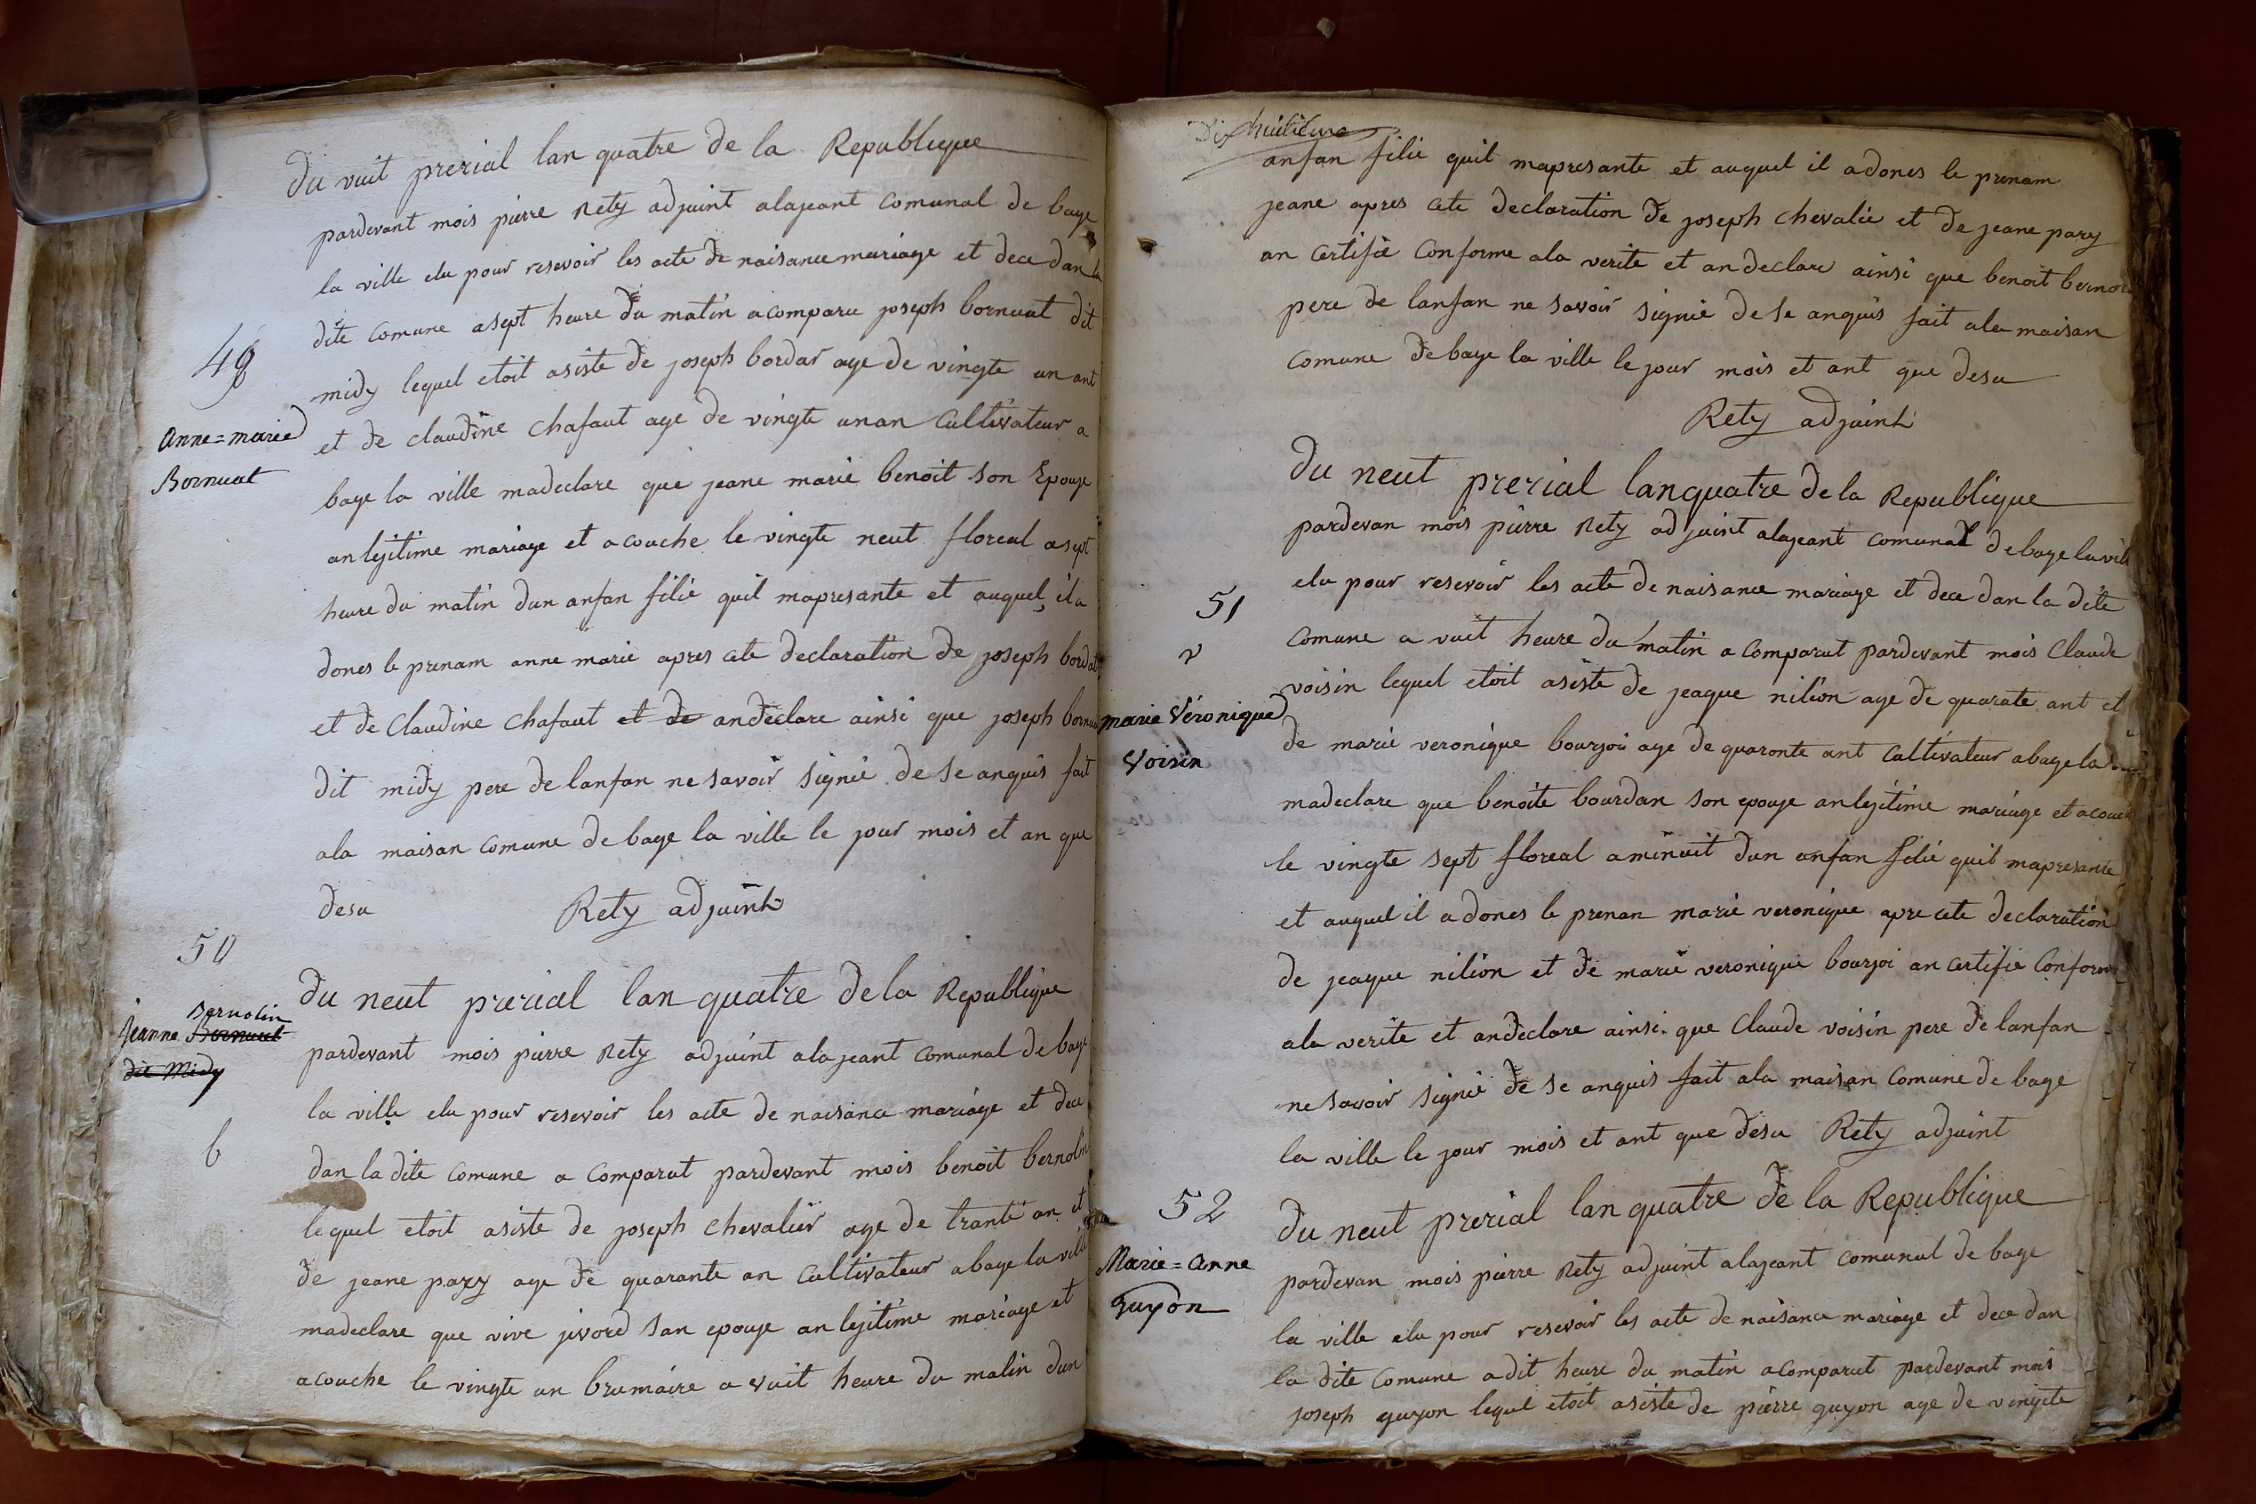 du vuit prerial lan quatre de la Republique
pardevant mois pierre Rety adjoint alajeant comunal de bage
la ville elu pour resevoir les acte de naisance mariage et dece dan la
dite comune asept heure du matin acomparu joseph bornuat dit
midy lequel etoit asiste de joseph bordat age de vingte un ant
et de claudine chafaut age de vingte unan cultivateur a
bage la ville madeclare que jeane marie benoit son Epouge
anlejitime mariage et acouche le vingte neut floreal asept
heure du matin dun anfan filie quil mapresante et auquel il a
dones le prenam anne marie apres cete declaration de joseph bordat
et de Claudine chafaut et de andeclare ainsi que joseph bornuat
dit midy pere de lanfan ne savoir signié de se anquis fait
ala maisan comune de bage la ville le jour mois et an que
desu Rety adjoint
49
anne=marie
Bornuat
50
Bernolin
jeanne Bornuat
dit Midy
b
du neut prerial lan quatre dela Republique
pardevant mois pierre Rety adjoint alajeant comunal de bage
la ville elu pour resevoir les acte de naisance mariage et dece
dan la dite comune a comparut pardevant mois benoit bernolin
lequel etoit asiste de joseph chevalier age de trante an et
de jeane pary age de quarante an cultivateur abage la ville
madeclare que vive jivord san epouge anlejitime mariage et
acouche le vingte un brumaire a vuit heure du matin dun
Dixhuitieme
anfan filie quil mapresante et auquel il adones le prenam
jeane apres cete declaration de joseph chevalie et de jeane pary
an certifie conforme ala verite et andeclare ainsi que benoit berno
pere de lanfan ne savoir signié de se anquis fait ala maisan
comune debage la ville le jour mois et ant que desu
Rety adjoint
du neut prerial lanquatre de la Republique
pardevan mois pierre Rety adjoint alajeant comunal debage la ville
elu pour resevoir les acte de naisance mariage et dece dan la dite
comune a vuit heure du matin a comparut pardevant mois Claude
voisin lequel etoit asiste de jeaque nilion age de quarate ant et
de marie veronique bourjoi age de quaronte ant cultivateur abage la
madeclare que benoite bourdan son epouge anlejitime mariage et acouche
le vingte sept floreal aminuit dun anfan filie quil mapresante
et auquel il a dones le prenan marie veronique apre cete declaration
de jeaque nilion et de marie veronique bourjoi an certifie conforme
ala verite et andeclare ainsi que Claude voisin pere de lanfan
ne savoir signié de se anquis fait ala maisan comune de bage
la ville le jour mois et ant que desu Rety adjoint
51
v
marie Véronique
Voisin
52
Marie=anne
guyon
du neut prerial lan quatre de la Republique
pardevan mois pierre Rety adjoint alajeant comunal de bage
la ville elu pour resevoir les acte de naisance mariage et dece dan
la dite comune adit heure du matin acomparut pardevant mois
joseph guyon lequel etoit asiste de pierre guyon age de vingte